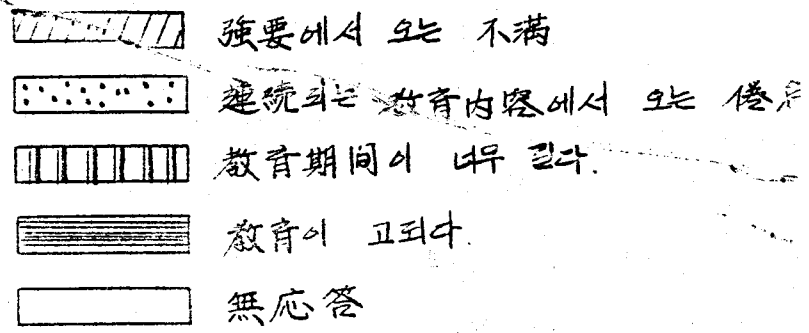 強要에서 오는 不満
連続되는 教育内容에서 오는
教育期間이 너무 길다.
教育이 고되다.
無応答